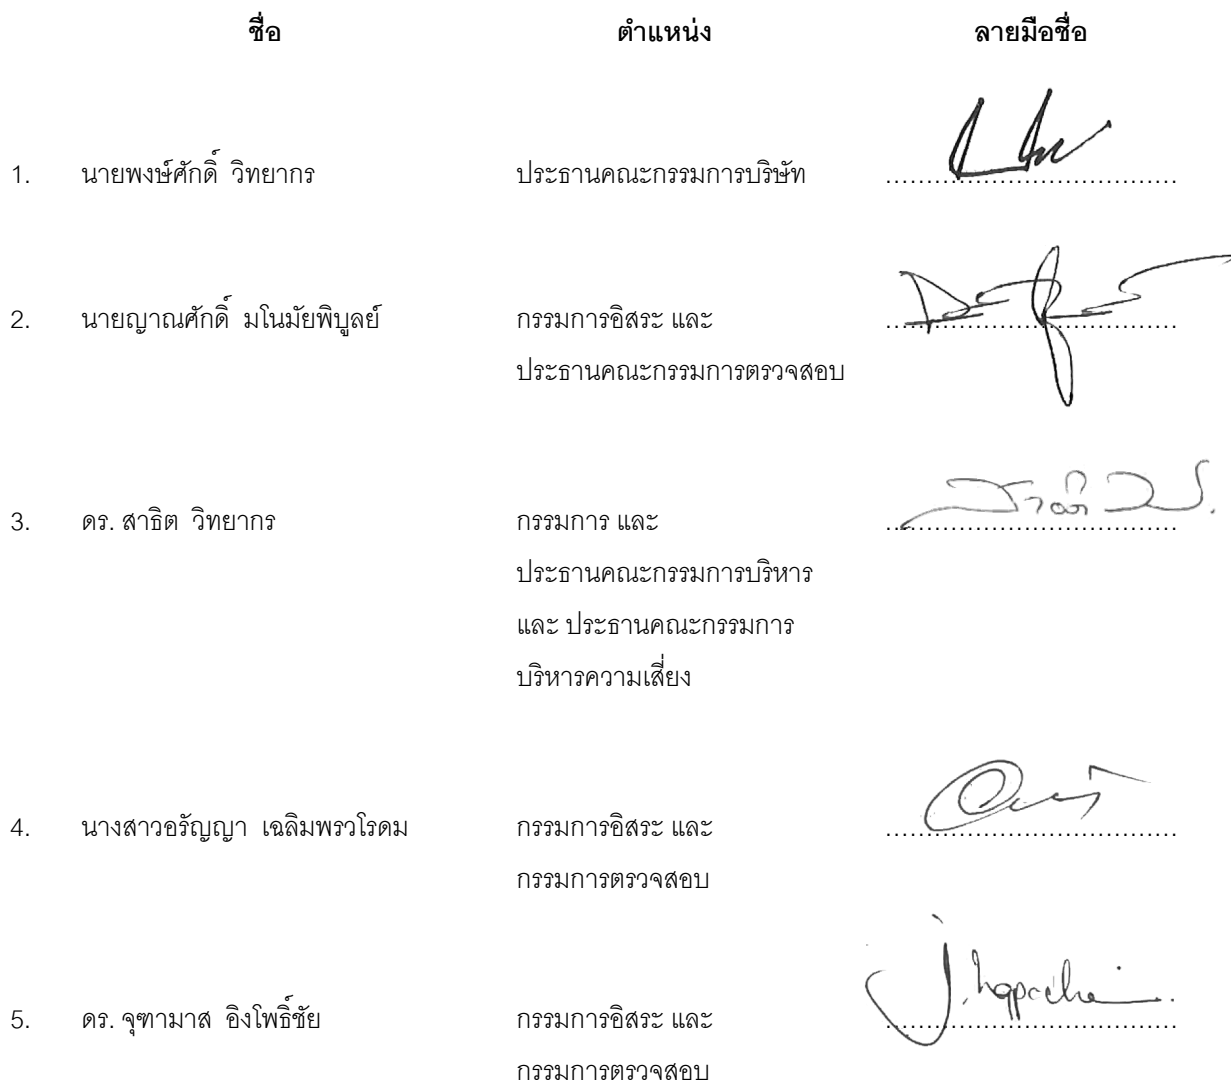 ชื่อ ตำแหน่ง ลายมือชื่อ
1. นายพงษ์ศักดิ์ วิทยากร ประธานคณะกรรมการบริษัท ..................................
2. นายญาณศักดิ์ มโนมัยพิบูลย์ กรรมการอิสระ และ ..................................
ประธานคณะกรรมการตรวจสอบ
3. ดร. สาธิต วิทยากร กรรมการ และ ..................................
ประธานคณะกรรมการบริหาร
และ ประธานคณะกรรมการ
บริหารความเสี่ยง
4. นางสาวอรัญญา เฉลิมพรวโรดม กรรมการอิสระ และ ..................................
กรรมการตรวจสอบ
5. ดร. จุฑามาส อิงโพธิ์ชัย กรรมการอิสระ และ ..................................
กรรมการตรวจสอบ